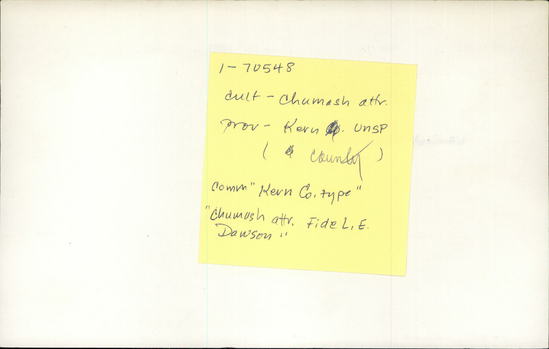 1-70548
cult - Chumash attr.
prov - Kern Co. UNSP
( County )
comm "Kern Co. type"
"Chumash attr. Fide L.E.
Dawson"